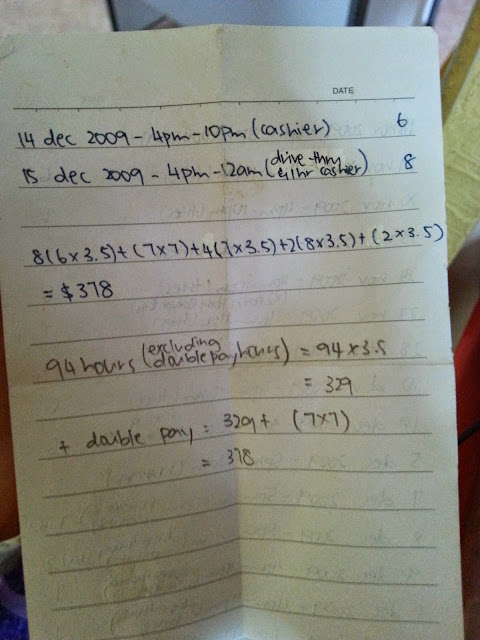 DATE
14 dec 2009 - 4pm-10pm (cashier) 6
15 dec 2009 - 4pm-12am (drive-thru & 1hr cashier) 8
8(6x3.5)+(7x7)+4(7x3.5)+2(8x3.5)+(2x3.5)
= $378
94 hours (excluding double pay hours) = 94x3.5
= 329
+ double pay = 329+ (7x7)
= 378